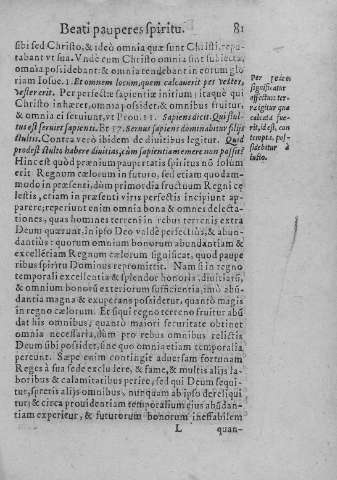 Beati pauperes spiritu. 81
sibi sed Christo, & ideò omnia quæ sunt Christi, repu-
tabant vt sua. Vnde cum Christo omnia sint subiecta,
omnia possidebant: & omnia tendebant in eorum glo
riam Iosue. 1. Et omnem locum, quem calcauerit pes vester,
vester erit. Per pedes sapientiæ initium; itaque qui
Christo inhæret, omnia possidet, & omnibus fruitur,
& omnia ei seruiunt, vt Prou. 11. Sapiens dicit. Qui stul-
tus est seruiet sapienti. Et 17. Seruus sapiens dominabitur filijs
stultis. Contra verò ibidem de diuitibus legitur. Quid
prodest stulto habere diuitias, cùm sapientiam emere non possit?
Hinc est quòd præmium paupertatis spiritus nō solum
erit Regnum cælorum in futuro, sed etiam quodam-
modo in præsenti, dùm primordia fructuum Regni cę
lestis, etiam in præsenti viris perfectis incipiunt ap-
parere; reperiunt enim omnia bona & omnes delecta-
tiones, quas homines terreni in rebus terrenis extra
Deum quærunt, in ipso Deo valdè perfectiùs, & abun-
dantiùs: quorum omnium bonorum abundantiam &
excellētiam Regnum cælorum significat, quod paupe
ribus spiritu Dominus repromittit. Nam si in regno
temporali excellentia & splendor honoris, diuitiarū,
& omnium bonorū exteriorum sufficientia, imò abū-
dantia magna & exuperans possidetur, quantò magis
in regno cælorum. Et si qui regno terreno fruitur abū
dat his omnibus, quantò maiori securitate obtinet
omnia necessaria, dùm pro rebus omnibus relictis
Deum sibi possidet, sine quo omnia etiam temporalia
pereunt. Sæpe enim contingit aduersam fortunam
Reges à sua sede excludere, & fame, & multis alijs la-
boribus & calamitatibus perire, sed qui Deum sequi-
tur, spretis alijs omnibus, nunquam ab ipso derelinqui
tur; & circa prouidentiam temporalium eius abūdan-
tiam experitur, & futurorum bonorum ineffabilem
L quan-
Per pedes
significatur
affectus: ter-
ra igitur qua
calcata fue-
rit, id est, con
tempta, pos-
sidebitur à
iusto.